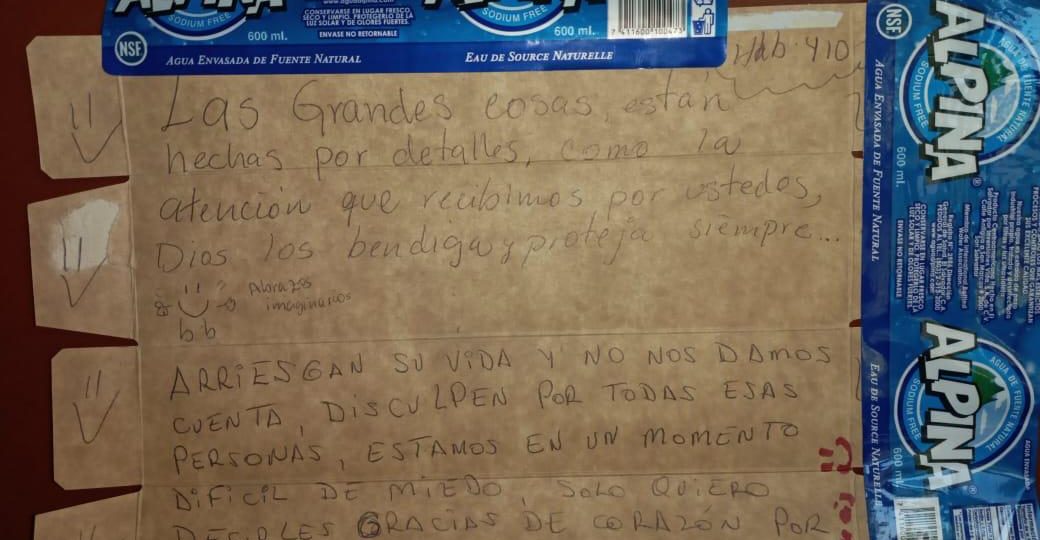 ALPINA
SODIUM FREE
SODIUM FREE
CONSERVARSE EN LUGAR FRESCO,
SECO Y LIMPIO, PROTEGERLO DE LA
LUZ SOLAR Y DE OLORES FUERTES.
ENVASE NO RETORNABLE
600 ml.
600 ml.
7 411600 100473
NSF
AGUA ENVASADA DE FUENTE NATURAL
EAU DE SOURCE NATURELLE
Hab. 410
Las Grandes cosas, estan
hechas por detalles, como la
atención que recibimos por ustedes,
Dios los bendiga y proteja siempre...
Abrazos
imaginarios
ARRIESGAN SU VIDA Y NO NOS DAMOS
CUENTA, DISCULPEN POR TODAS ESAS
PERSONAS, ESTAMOS EN UN MOMENTO
DIFICIL DE MIEDO, SOLO QUIERO
DECIRLES GRACIAS DE CORAZÓN POR
NSF
ALPINA
AGUA DE FUENTE NATURAL
SODIUM FREE
600 ml.
AGUA ENVASADA DE FUENTE NATURAL
CONSERVARSE EN LUGAR FRESCO,
SECO Y LIMPIO, PROTEGERLO DE LA
LUZ SOLAR Y DE OLORES FUERTES.
ENVASE NO RETORNABLE
ALPINA
AGUA DE FUENTE NATURAL
SODIUM FREE
600 ml.
EAU DE SOURCE NATURELLE
AGUA ENVASADA